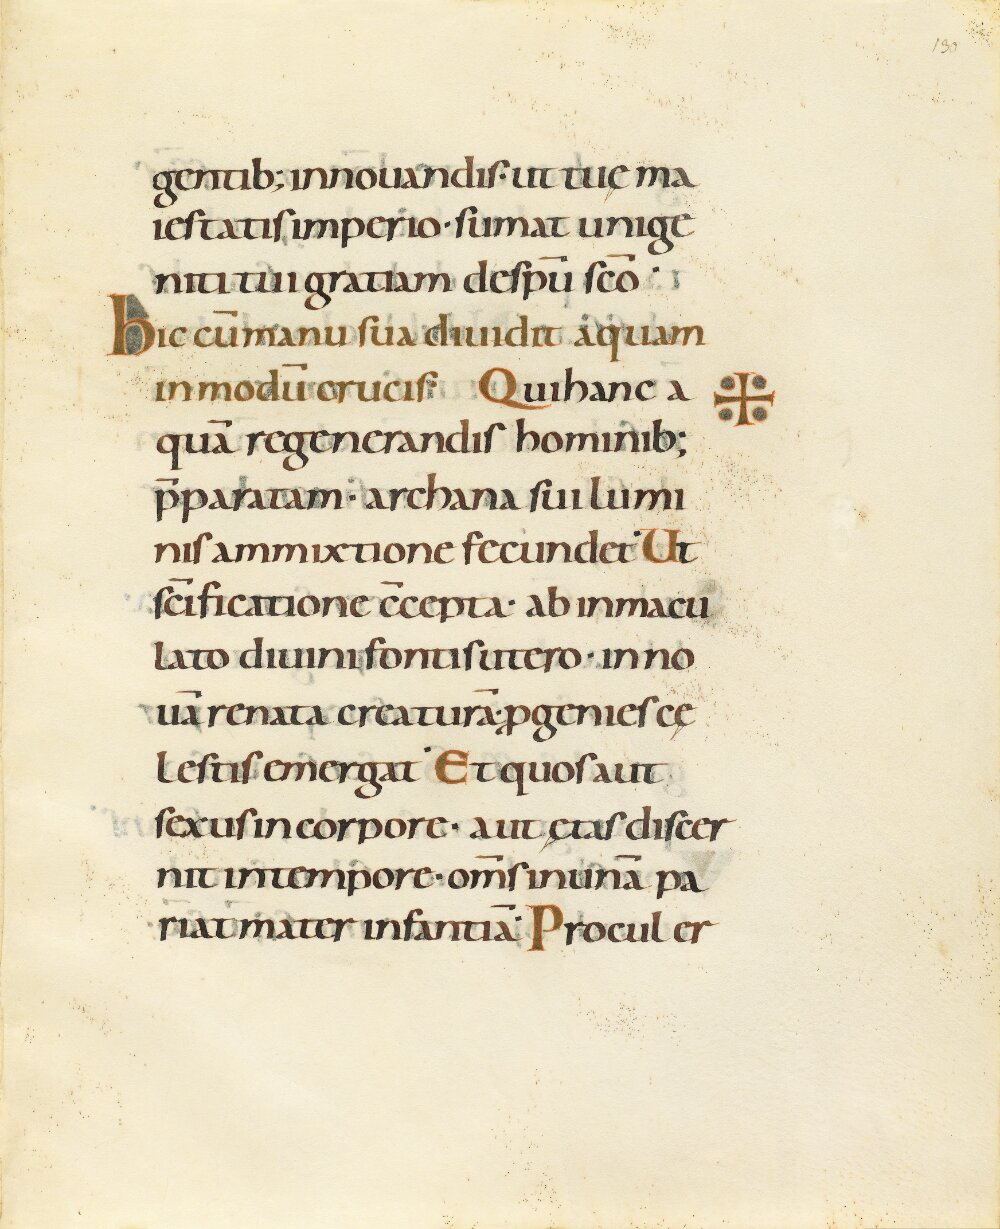 130
gentib; innouandis· ut tuę ma
iestatis imperio· sumat unige
niti tui gratiam de sp̄u sc̄o·
hic cū manu sua diuidit aquam
in modū crucis: Qui hanc a
quā regenerandis hominib;
p̄paratam· archana sui lumi
nis ammixtione fecundet· Ut
sc̄ificatione c̄cepta· ab inmacu
lato diuini fontis utero· in no
uā renata creaturā· ꝓgenies cę
lestis emergat· Et quos aut
sexus in corpore· aut ętas discer
nit in tempore· om̄s in unā pa
riat mater infantiā· Procul er